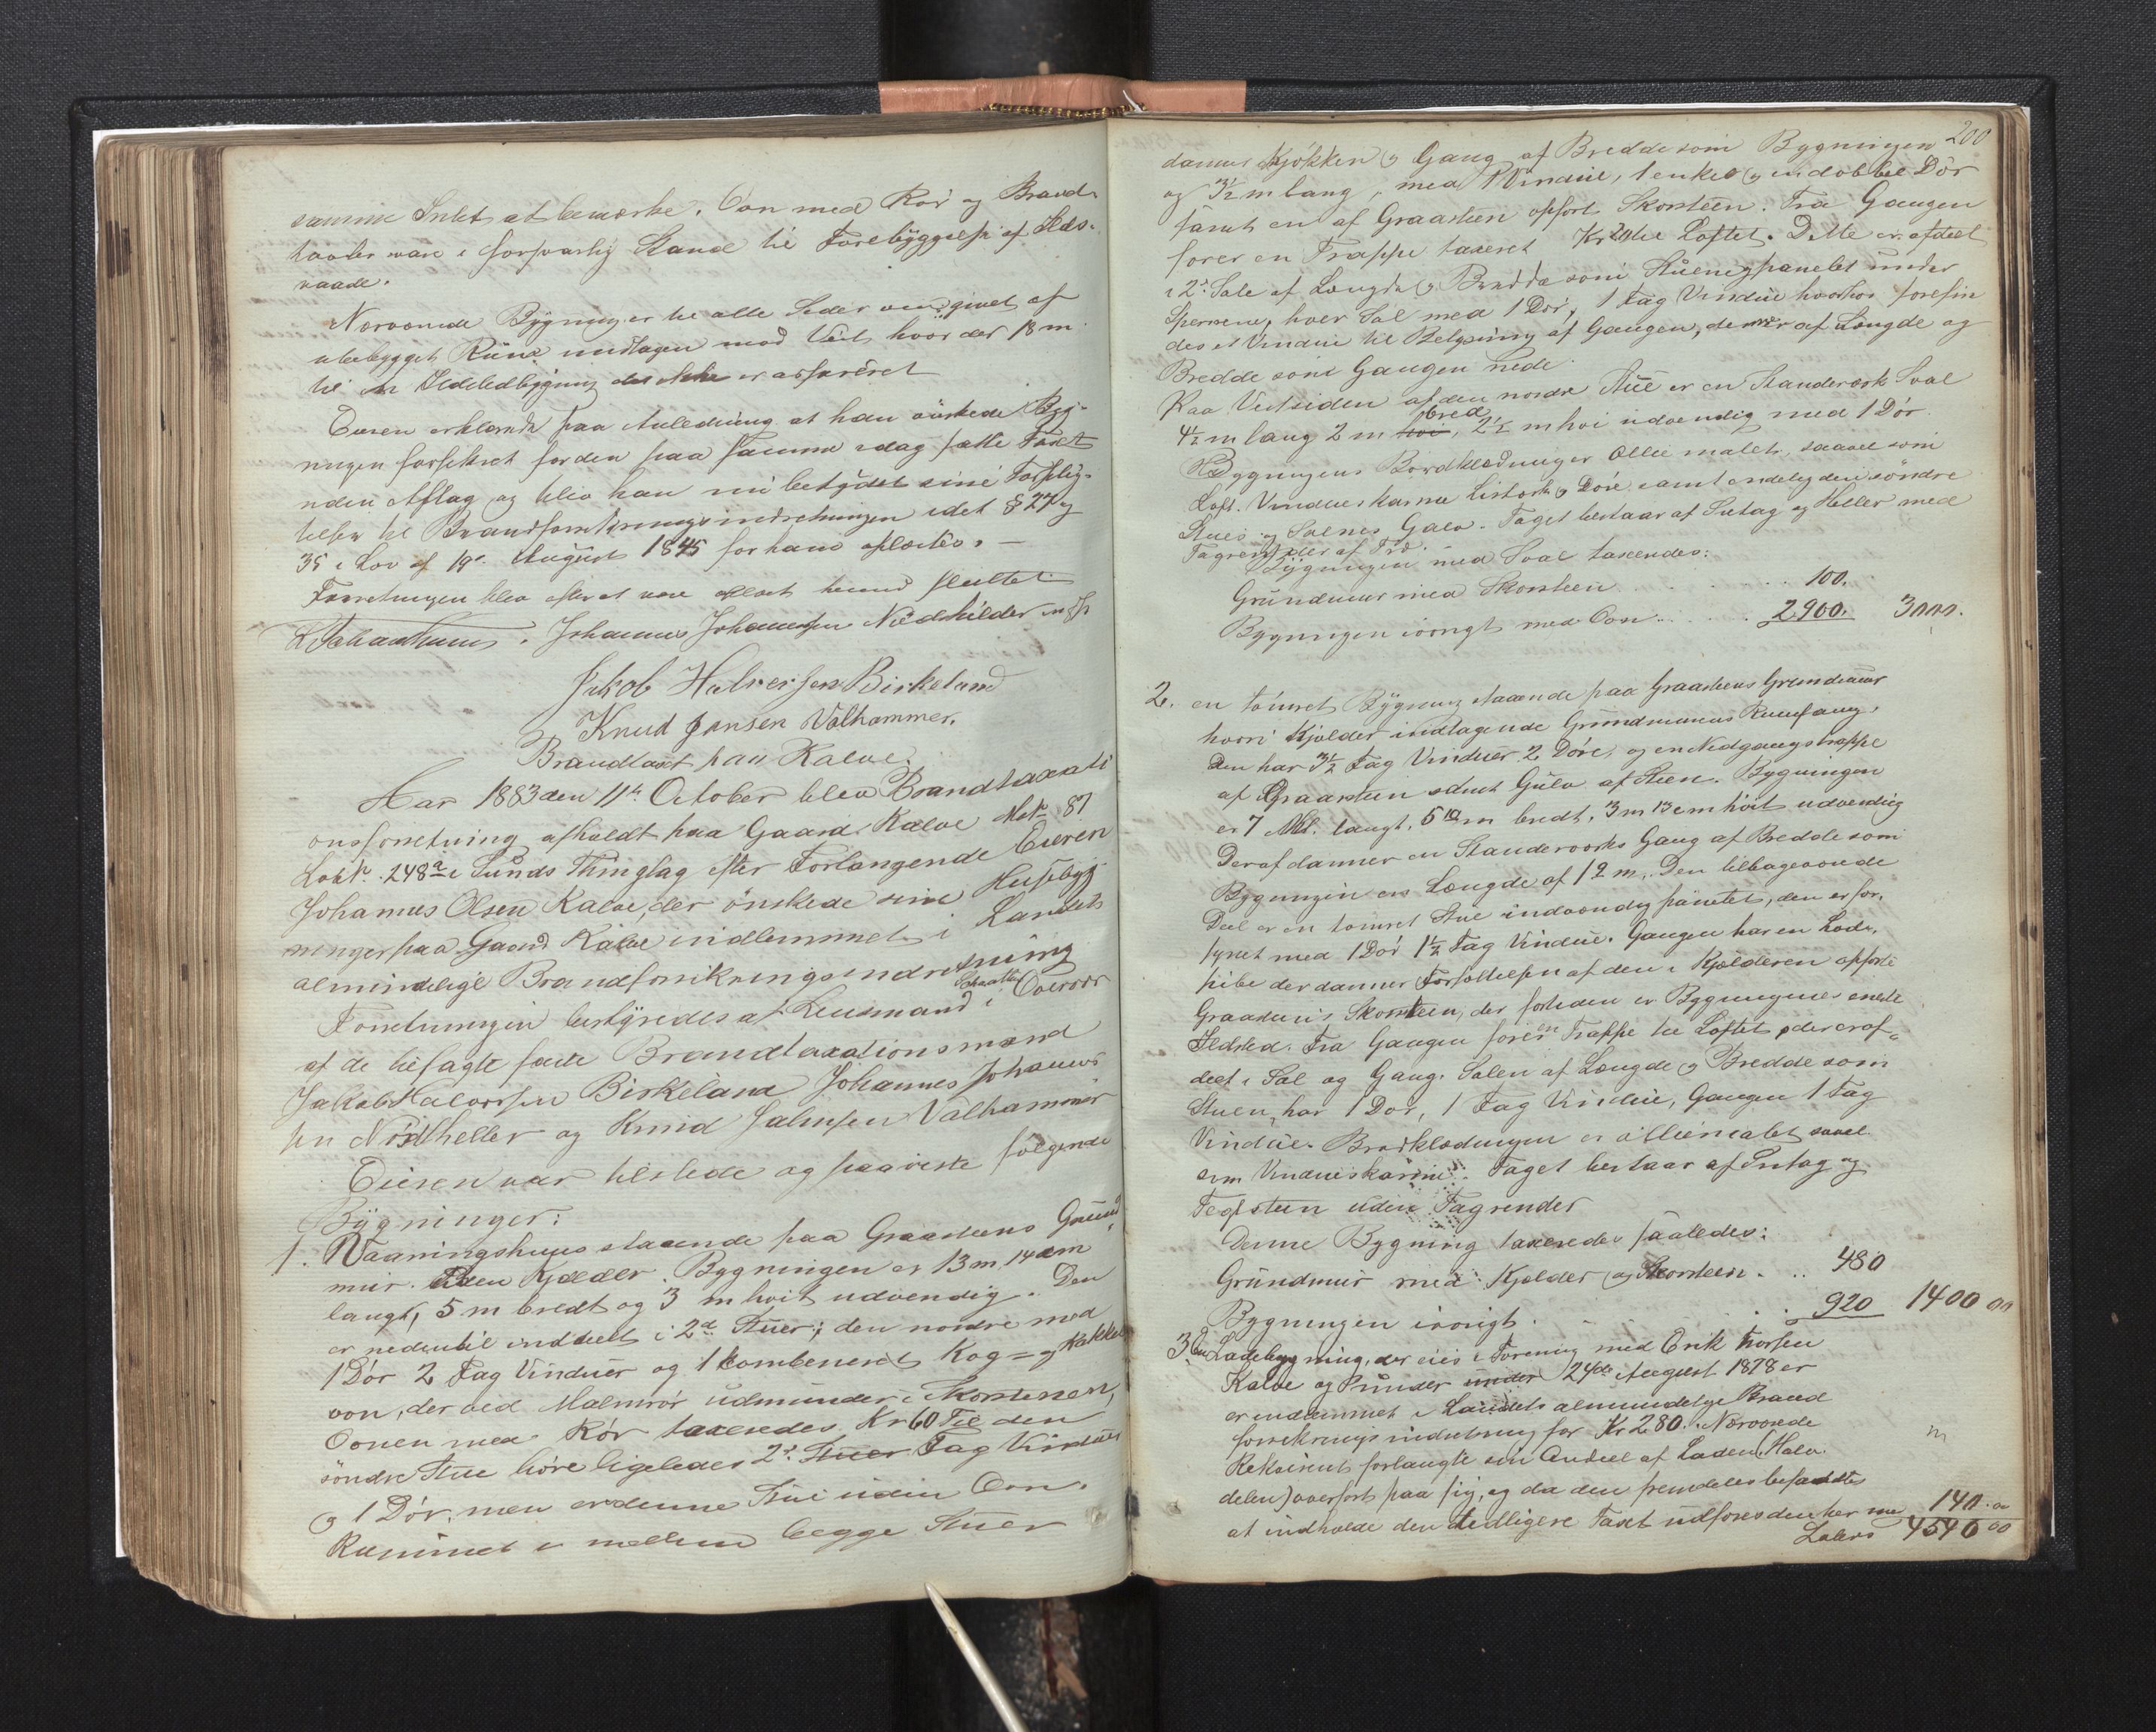 samme Intet at bemærke. Ovn med Rör og Brand-
taxter vare i forsvarlig Stand til Forebyggelse af Ilds-
vaade.
Nærværende Bygning er til alle Sider omgivet af
ubebygget Rum undtagen mod Vest hvor der 18 m
til en Ildstedbygning der ikke er assureret
Eieren erklærede paa Anledning at han önskede Byg-
ningen forsikret for den paa samme idag satte Taxt
uden Afslag og blev han nu betydet sine Forplig-
telser til Brandforsikringsindretningen idet § 27 og
35 i Lov af 19de August 1845 for ham oplæstes. -
Forretningen blev efter at være oplæst hermed sluttet
Johannes Johannessen Nödskilder m. f. P.
Jakob Halversen Birkeland
Knud Jansen Valhammer.
Brandtaxt paa Kalve.
Aar 1883 den 11te October blev Brandtaxati
onsforretning afholdt paa Gaard Kalve Mat No 87
Löb No. 248a i Sunds Thinglag efter Forlangende Eieren
Johannes Olsen Kalve, der önskede sine Husebyg
ninger paa Gaard Kalve indlemmet i Landets
almindelige Brandforsikringsindretning
Forretningen bestyredes af Lensmand i Overvær
af de tilsagte faste Brandtaxationsmænd
Jakob Halvorsen Birkeland Johannes Johannes
sen Nödtheller og Knud Jahnsen Valhammer
Eieren var tilstede og paaviste fölgende
Bygninger:
1. Vaaningshuus staaende paa Graasteens Grund
muur. uden Kjælder. Bygningen er 13 m 14 cm
langt, 5 m bredt og 3 m höit udvendig. Den
er nedentil inddeelt i 2de Stuer; den nordre med
1 Dör 2 Fag Vinduer og 1 kombeneret Kog= og Kakkel
ovn, der ved Malmrör udmunder i Skorstenen,
Ovnen med Rör taxeredes Kr 60 Til den
söndre Stue höre ligeledes 2de Stuer Fag Vinduer
og 1 Dör, men er denne Stue uden Ovn.
Rummet i mellem begge Stuer
200
danner Kjökken og Gang af Bredde som Bygningen
og 3 1/2 m lang, med 1 Vindue, 1 enkel og en dobbel Dör
samt en af Graasteen opfört Skorsteen. Fra Gangen
förer en Trappe taxeret Kr 20 til Loftet. Dette er afdeelt
i 2de Sale af Længde og Bredde som Stuerne, panelet under
Sperrene, hver Sal med 1 Dör, 1 Fag Vindue hvorhos forefin
des et Vindue til Belysning af Gangen, denne er af Længde og
Bredde som Gangen nede
Paa Vestsiden af den nordre Stue er en Standerværk Sval
4 1/2 m lang 2 m höi bred, 2 1/2 m höi udvendig med 1 Dör
Bygningens Bordklædninger Ollie malet, saavel som
Loft. Vindueskarme Listverk og Döre samt endelig den söndre
Stues og Salnes Gulv. Taget bestaar af Sutag og Heller med
Tagrender af Træ.
Bygningen med Sval taxeredes:
Grundmuur med Skorsteen . . . . 100.
Bygningen iövrigt med Ovn . . . . 2900. 3000.
2. en tömret Bygning staaende paa Graasteens Grundmuur
hvori Kjelder indtagende Grundmurens Rumfang.
Den har 3 1/2 Fag Vinduer 2 Döre, og en Nedgangstrappe
af Graasteen samt Gulv af Steen. Bygningen
er 7 Mtr. langt, 5 m bredt, 3 m 13 cm höit udvendig
Deraf danner en Standerværks Gang af Bredde som
Bygningen en Længde af 1 2 m. Den tilbageværende
Deel er en tömret Stue indvendig panelet, den er for,
synet med 1 Dör 1 1/2 Fag Vindue. Gangen har en Lode,
pibe der danner Forsættelsen af den i Kjælderen opförte
Graasteens Skorsteen, der forleden er Bygningens eneste
Ildsted. Fra Gangen förer en Trappe til Loftet og der er af-
deelt i Sal og Gang. Salen af Længde og Bredde som
Stuen, har 1 Dör, 1 Fag Vindue, Gangen 1 Fag
Vindue. Bordklædningen er olliemalet saavel
som Vindueskarme. Taget bestaar af Sutag og
Teglsteen uden Tagrender
Denne Bygning taxeredes saaledes:
Grundmuur med Kjælder og Skorsteen . . . 480
Bygningen iövrigt . . . 920 1400 00
3. En Ladebygning, der eies i Forening med Erik Thorsen
Kalve og under under 24de August 1878 er
er indlemmet i Landets almindelige Brand
forsikringsindretning for Kr 280. Nærværende
Rekvirent forlangte sin Andeel af Laden (Halv
delen) overfört paa sig, og da den fremdeles befandtes
at indholde den tidligere Taxt udföres den her med 140. 00
Laters 4540 00